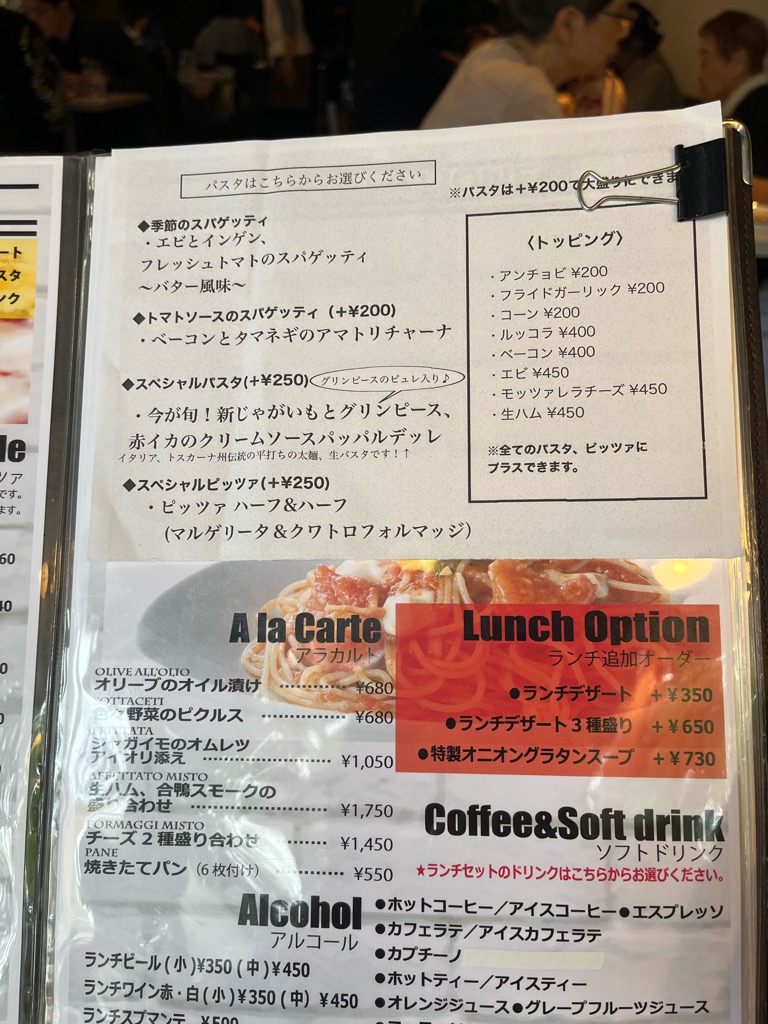 パスタはこちらからお選びください
※パスタは+¥200で大盛りにできま
◆季節のスパゲッティ
・エビとインゲン、
フレッシュトマトのスパゲッティ
〜バター風味〜
◆トマトソースのスパゲッティ（+¥200)
・ベーコンとタマネギのアマトリチャーナ
◆スペシャルパスタ(+¥250)
グリンピースのピュレ入り♪
・今が旬！新じゃがいもとグリンピース、
赤イカのクリームソースパッパルデッレ
イタリア、トスカーナ州伝統の平打ちの太麺、生パスタです！↑
◆スペシャルピッツァ(+¥250)
・ピッツァ ハーフ&ハーフ
(マルゲリータ＆クワトロフォルマッジ）
〈トッピング〉
・アンチョビ ¥200
・フライドガーリック ¥200
・コーン ¥200
・ルッコラ ¥400
・ベーコン ¥400
・エビ ¥450
・モッツァレラチーズ ¥450
・生ハム ¥450
※全てのパスタ、ピッツァに
プラスできます。
A la Carte
アラカルト
OLIVE ALL'OLIO
オリーブのオイル漬け ………… ¥680
OTTACETI
色々野菜のピクルス ………… ¥680
FRITTATA
ジャガイモのオムレツ
アイオリ添え ………… ¥1,050
AFFETTATO MISTO
生ハム、合鴨スモークの
盛り合わせ ………… ¥1,750
FORMAGGI MISTO
チーズ2種盛り合わせ ………… ¥1,450
PANE
焼きたてパン（6枚付け） ………… ¥550
Lunch Option
ランチ追加オーダー
●ランチデザート +¥350
●ランチデザート3種盛り +¥650
●特製オニオングラタンスープ +¥730
Coffee&Soft drink
ソフトドリンク
★ランチセットのドリンクはこちらからお選びください。
●ホットコーヒー／アイスコーヒー●エスプレッソ
●カフェラテ／アイスカフェラテ
●カプチーノ
●ホットティー／アイスティー
●オレンジジュース●グレープフルーツジュース
Alcohol
アルコール
ランチビール(小)¥350(中)¥450
ランチワイン赤・白(小)¥350(中)¥450
ランチスプマンテ ¥500
ート
スタ
ンク
le
ツァ
です。
ます。
60
40